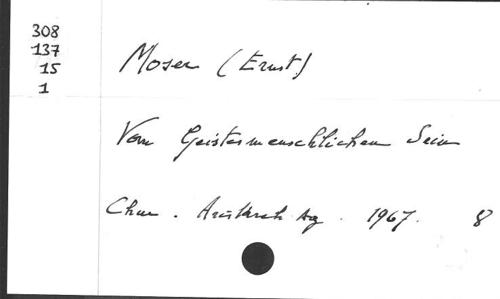 308
137
15
1
Moser (Ernst)
Vom Geistesmenschlichen Sein
Chur. AG. 1967. 8